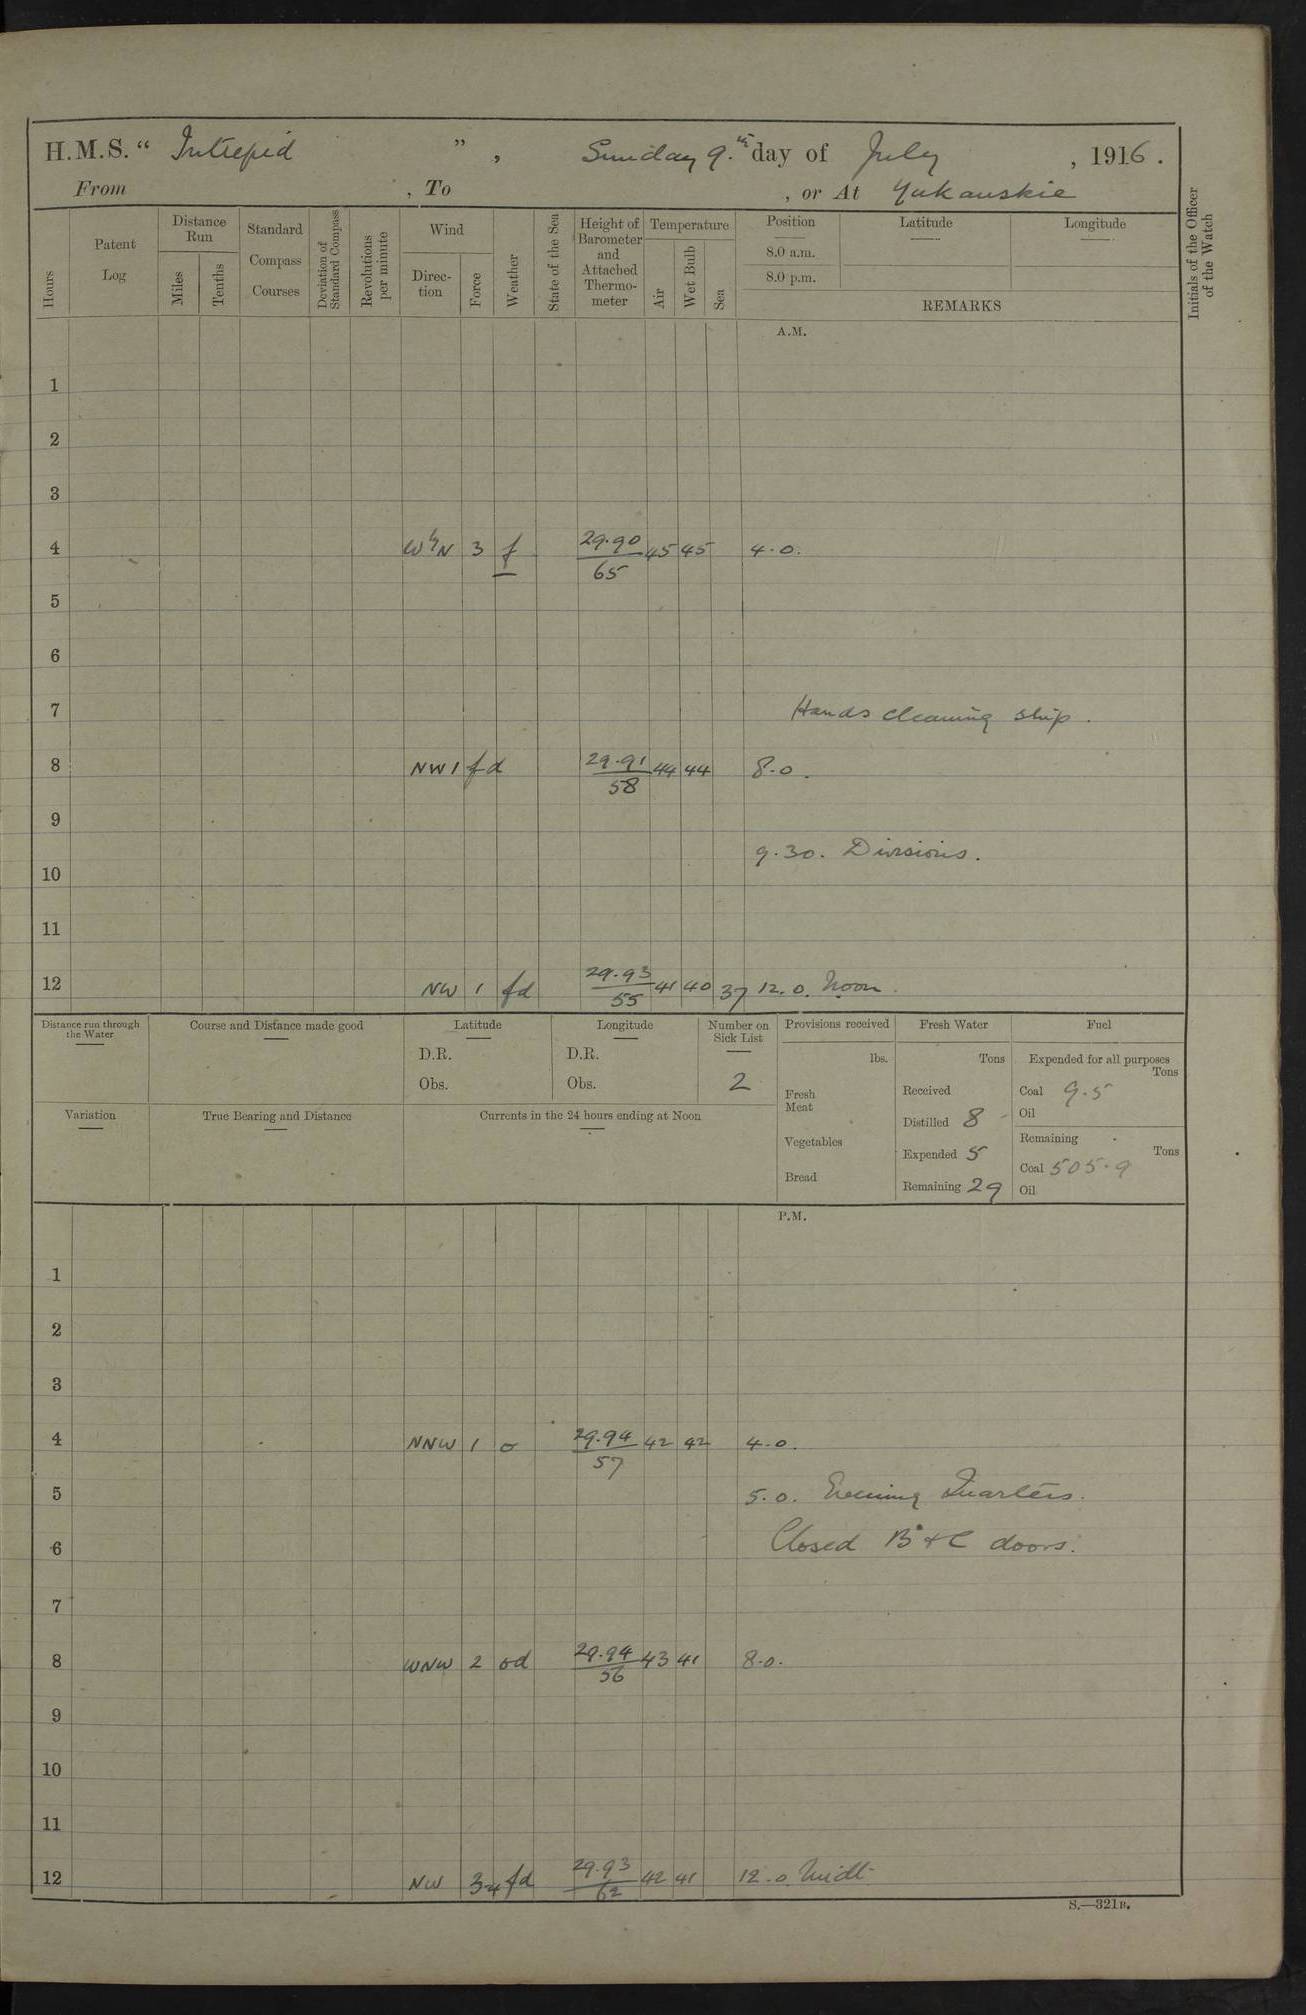 H.M.S. “ Intrepid ” , Sunday 9.th day of July , 1916 .
From , To , or At Yukanskie
Hours
Patent Log
Distance Run
Miles
Tenths
Standard Compass Courses
Deviation of Standard Compass
Revolutions per minute
Wind
Direc-tion
Force
Weather
State of the Sea
Height of Barometer and Attached Thermo-meter
Temperature
Air
Wet Bulb
Sea
Position
8.0 a.m.
8.0 p.m.
Latitude
Longitude
REMARKS
Initials of the Officer of the Watch
A.M.
1
2
3
4 W b N 3 f 29.90 45 45 4.0.
65
5
6
7 Hands cleaning ship.
8 NW 1 fd 29.91 44 44 8.0.
58
9
9.30. Divisions.
10
11
12 NW 1 fd 29.93 41 40 37 12.0. Noon.
55
Distance run through the Water
Course and Distance made good
Latitude
D.R.
Obs.
Longitude
D.R.
Obs.
Number on Sick List
2
Variation
True Bearing and Distance
Currents in the 24 hours ending at Noon
Provisions received
lbs.
Fresh Meat
Vegetables
Bread
Fresh Water
Tons
Received
Distilled 8
Expended 5
Remaining 29
Fuel
Expended for all purposes
Tons
Coal 9.5
Oil
Remaining
Tons
Coal 505.9
Oil
P.M.
1
2
3
4 NNW 1 o 29.94 42 42 4.0.
57
5 5.0. Evening Quarters.
6 Closed B & C doors.
7
8 WNW 2 od 29.94 43 41 8.0.
56
9
10
11
12 NW 3-4 fd 29.93 42 41 12.0. Midt
62
S.—321B.